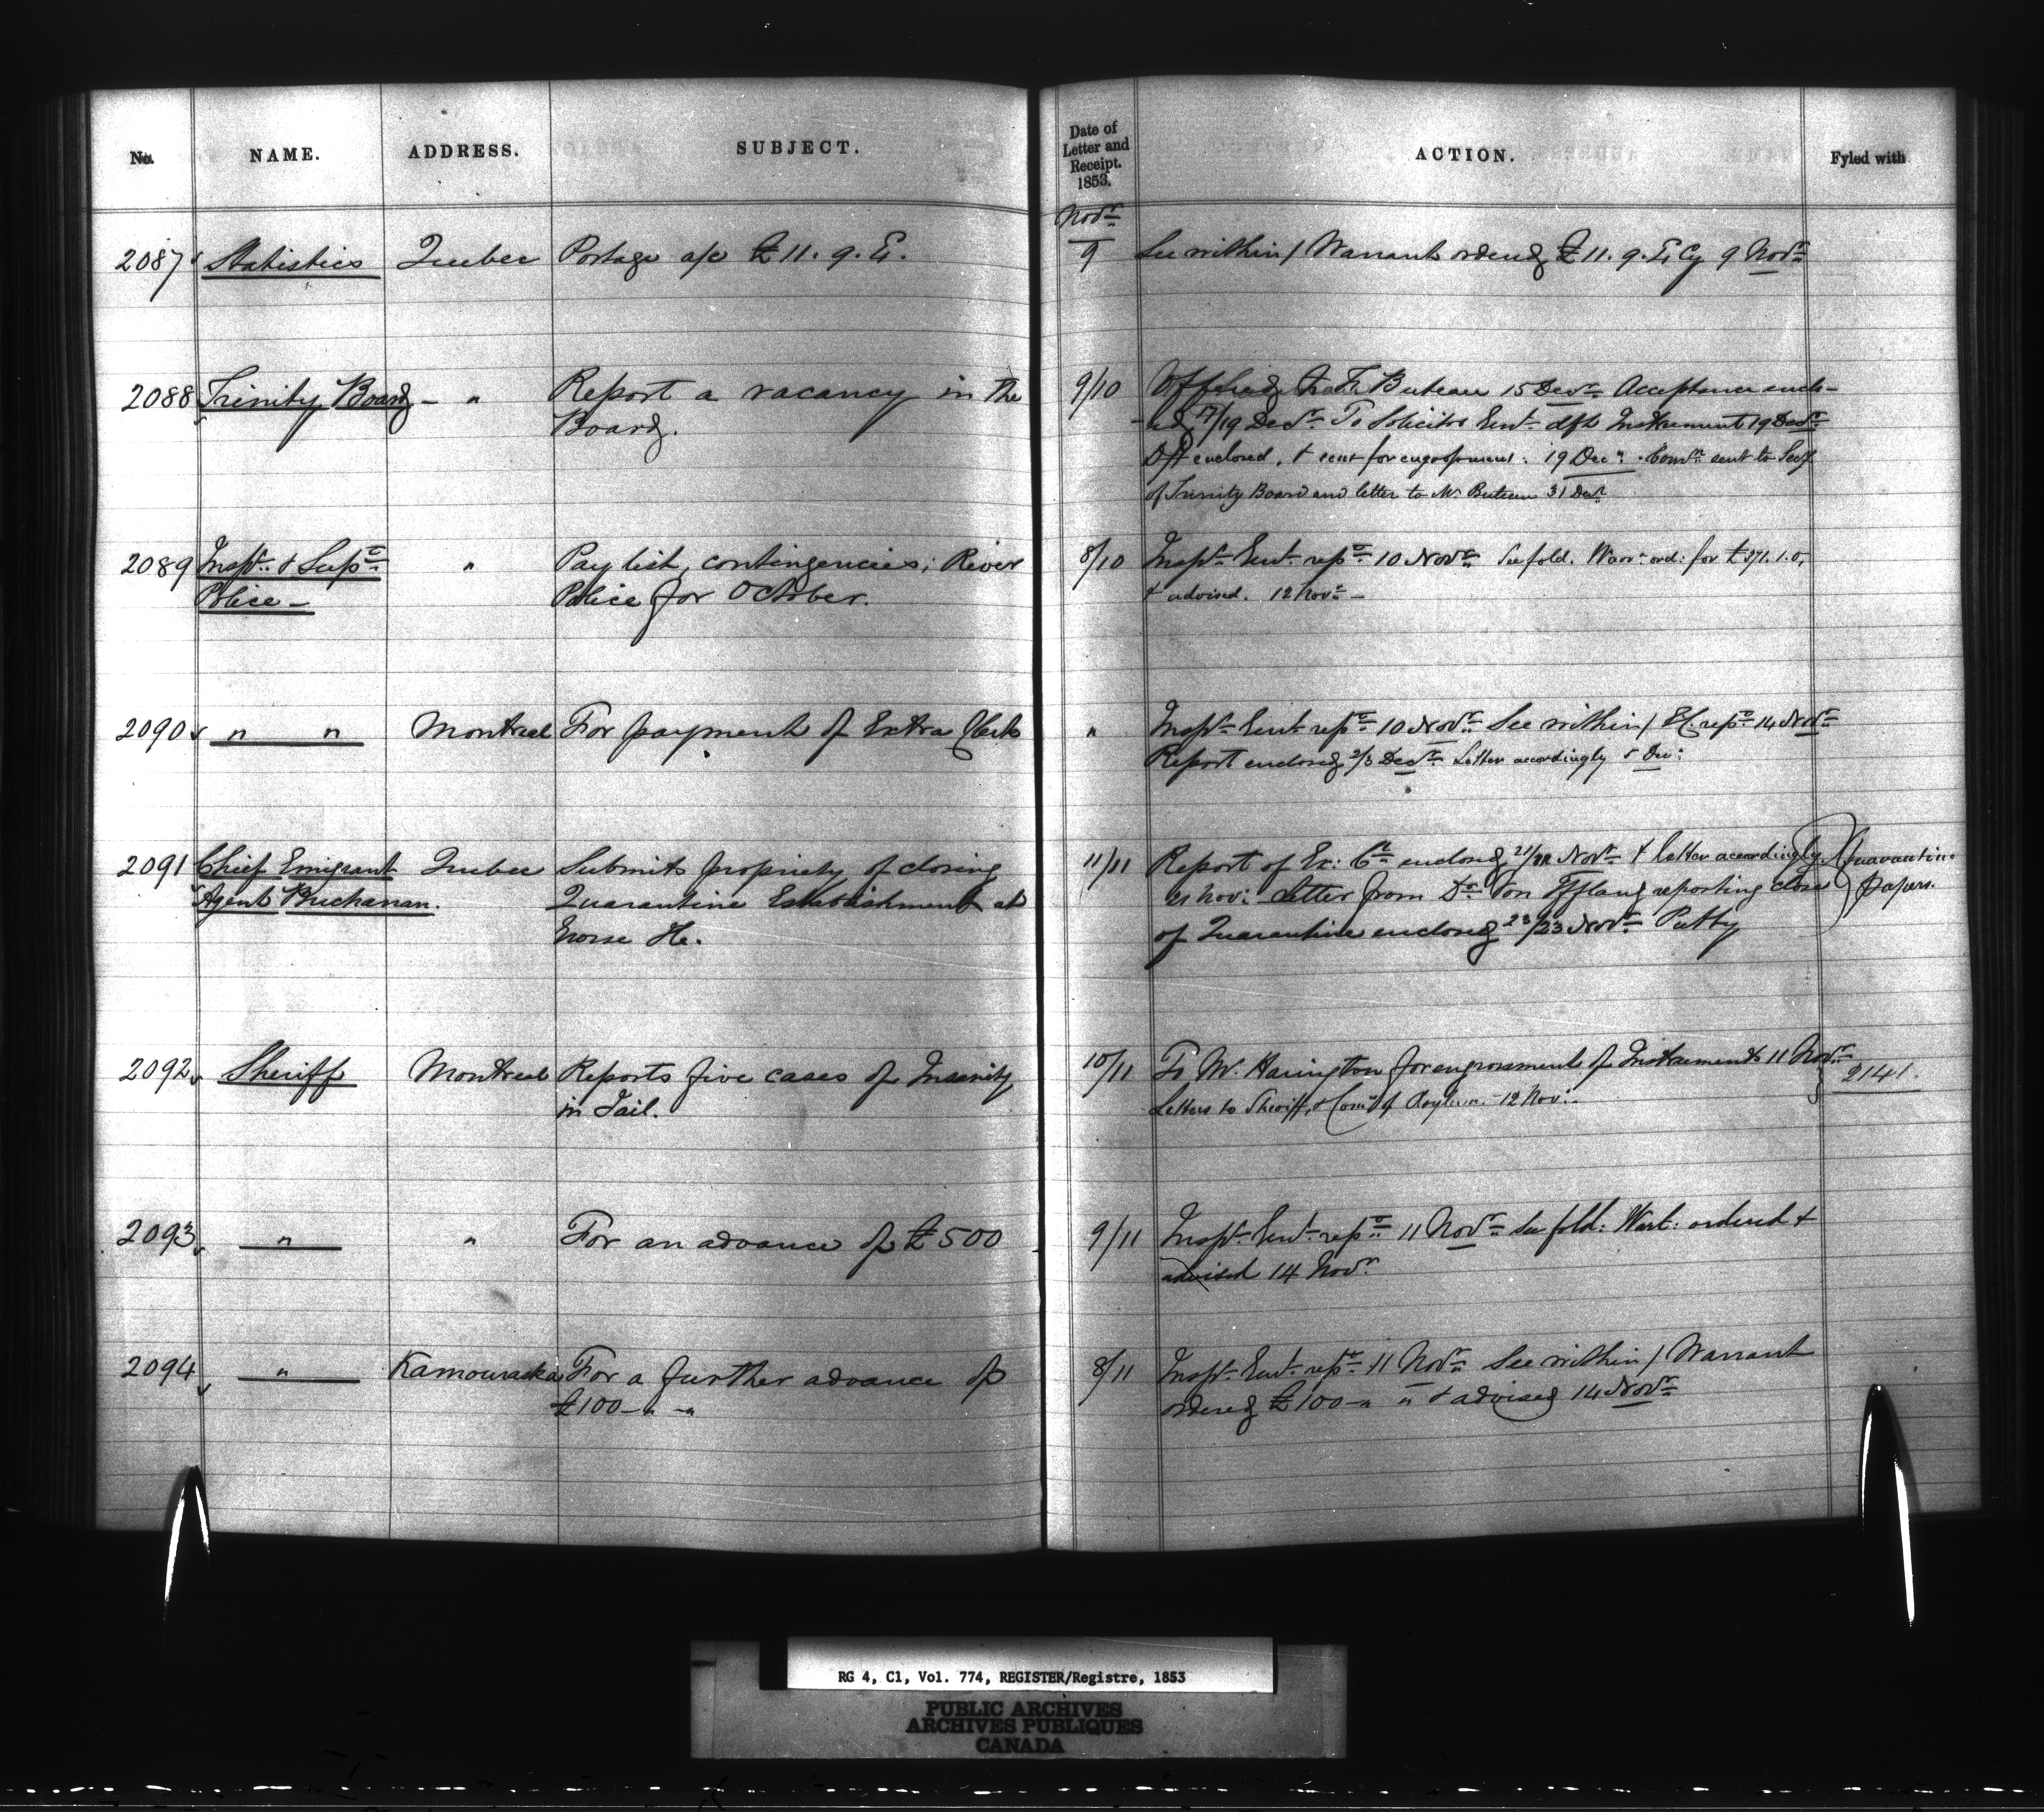 No. NAME. ADDRESS. SUBJECT. Date of Letter and Receipt. 1853. ACTION. Fyled with
Novr
2087 Statistics Quebec Postage a/c £11. 9. 9 See within / Warrant ordered £11. 9. Cy 9 Novr
2088 Trinity Board - " Report a vacancy in the 9/10 Offered to Buteau 15 Decr Acceptance enclo-
Board. -ed 17/19 Decr To Solicitor Genl dft Instrument 19 Decr
Dft enclosed, & sent for engrossment. 19 Decr. Comn sent to Secy
of Trinity Board and letter to Mr Buteau 31 Decr
2089 Inspr & Supt " Pay list, contingencies; River 8/10 Inspr Genl repts 10 Novr See fold. Warrt ord: for £271. 1. 0,
Police - Police for October. & advised. 12 Novr -
2090 " " Montreal For payment of Extra Clerk " Inspr Genl repts 10 Novr See within / EC repts 14 Novr
Report enclosed 2/3 Decr Letter accordingly 5 Dec:
2091 Chief Emigrant Quebec Submits propriety of closing 11/11 Report of Ex: Cl enclosed 21/21 Novr & letter accordingly Quarantine
Agent Buchanan. Quarantine Establishment at 21 Nov: Letter from Dr Von Iffland reporting close papers.
Grosse Ile. of Quarantine enclosed 23/23 Novr Putby
2092 Sheriff Montreal Reports five cases of Insanity 10/11 To Mr. Harington for engrossment of Instruments 11 Novr 2141.
in Jail. Letters to Sheriff, & Comrs of Asylum. 12 Nov:
2093 " " For an advance of £500 9/11 Inspr Genl repts 11 Novr See fold: Wart: ordered &
advised 14 Novr
2094 " Kamouraska For a further advance of 8/11 Inspr Genl repts 11 Novr See within / Warrant
£100 - " - " ordered £100 - " " & advised 14 Novr
RG 4, C1, Vol. 774, REGISTER/Registre, 1853
PUBLIC ARCHIVES
ARCHIVES PUBLIQUES
CANADA